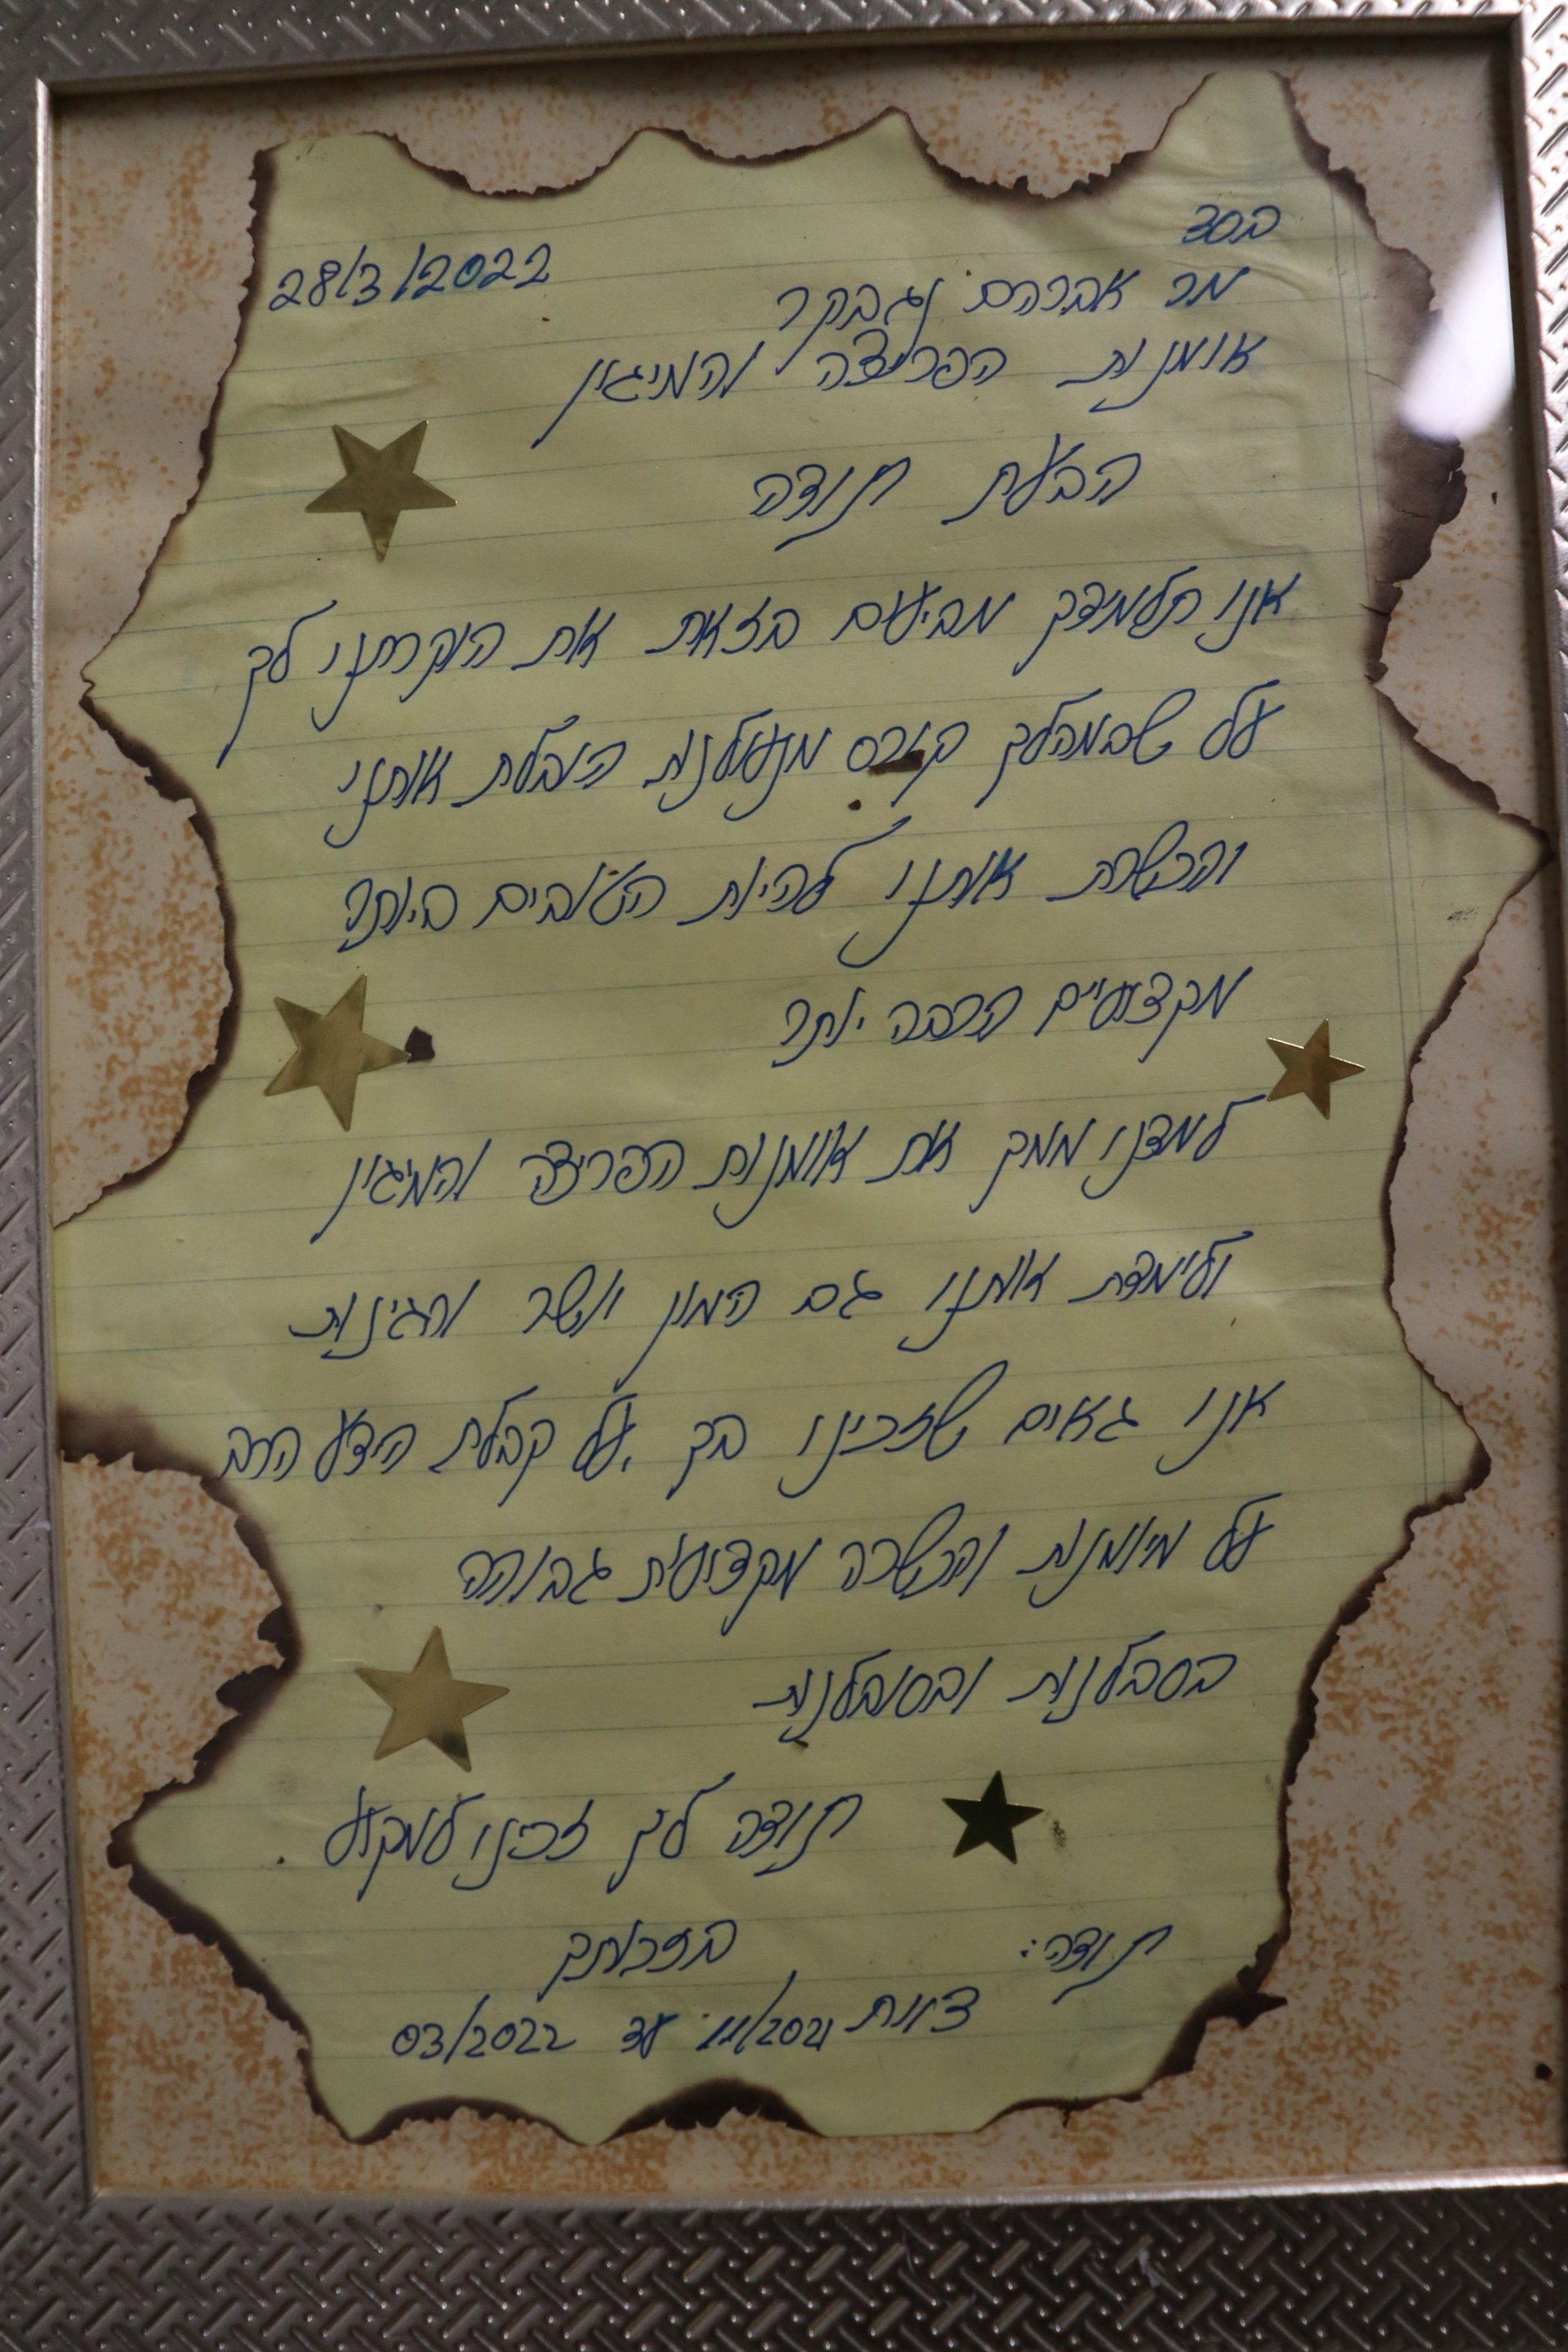 בסד
28/3/2022
מר אברהם נגבקר
אומנות הפריצה והמיגון
הבעת תודה
אנו תלמידך מביעים בזאת את הוקרתנו לך
על שבמהלך קורס מנעולנות הובלת אותנו
והכשרת אותנו להיות הטובים ביותר
מקצועיים הרבה יותר
למדנו ממך את אומנות הפריצה והמיגון
ולימדת אותנו גם המון יושר והגינות
אנו גאים שזכינו בך, על קבלת הידע הרב
על מיומנות והכשרה מקצועית גבוהה
בסבלנות ובסובלנות
תודה לך זכינו למקצוע.
תודה: בזכותך
צוות 11/2021 עד 03/2022